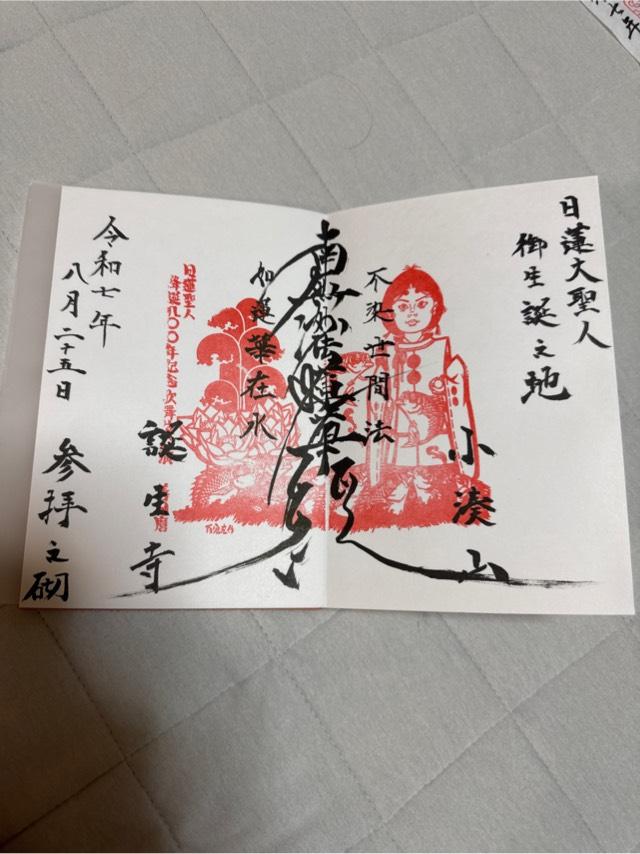 日蓮大聖人
御生誕之地
小湊山
不染世間法
南無妙法蓮華経
如蓮華在水
誕生寺
日蓮聖人
降誕八〇〇年記念
令和七年
八月二十五日
参拝之砌
七年